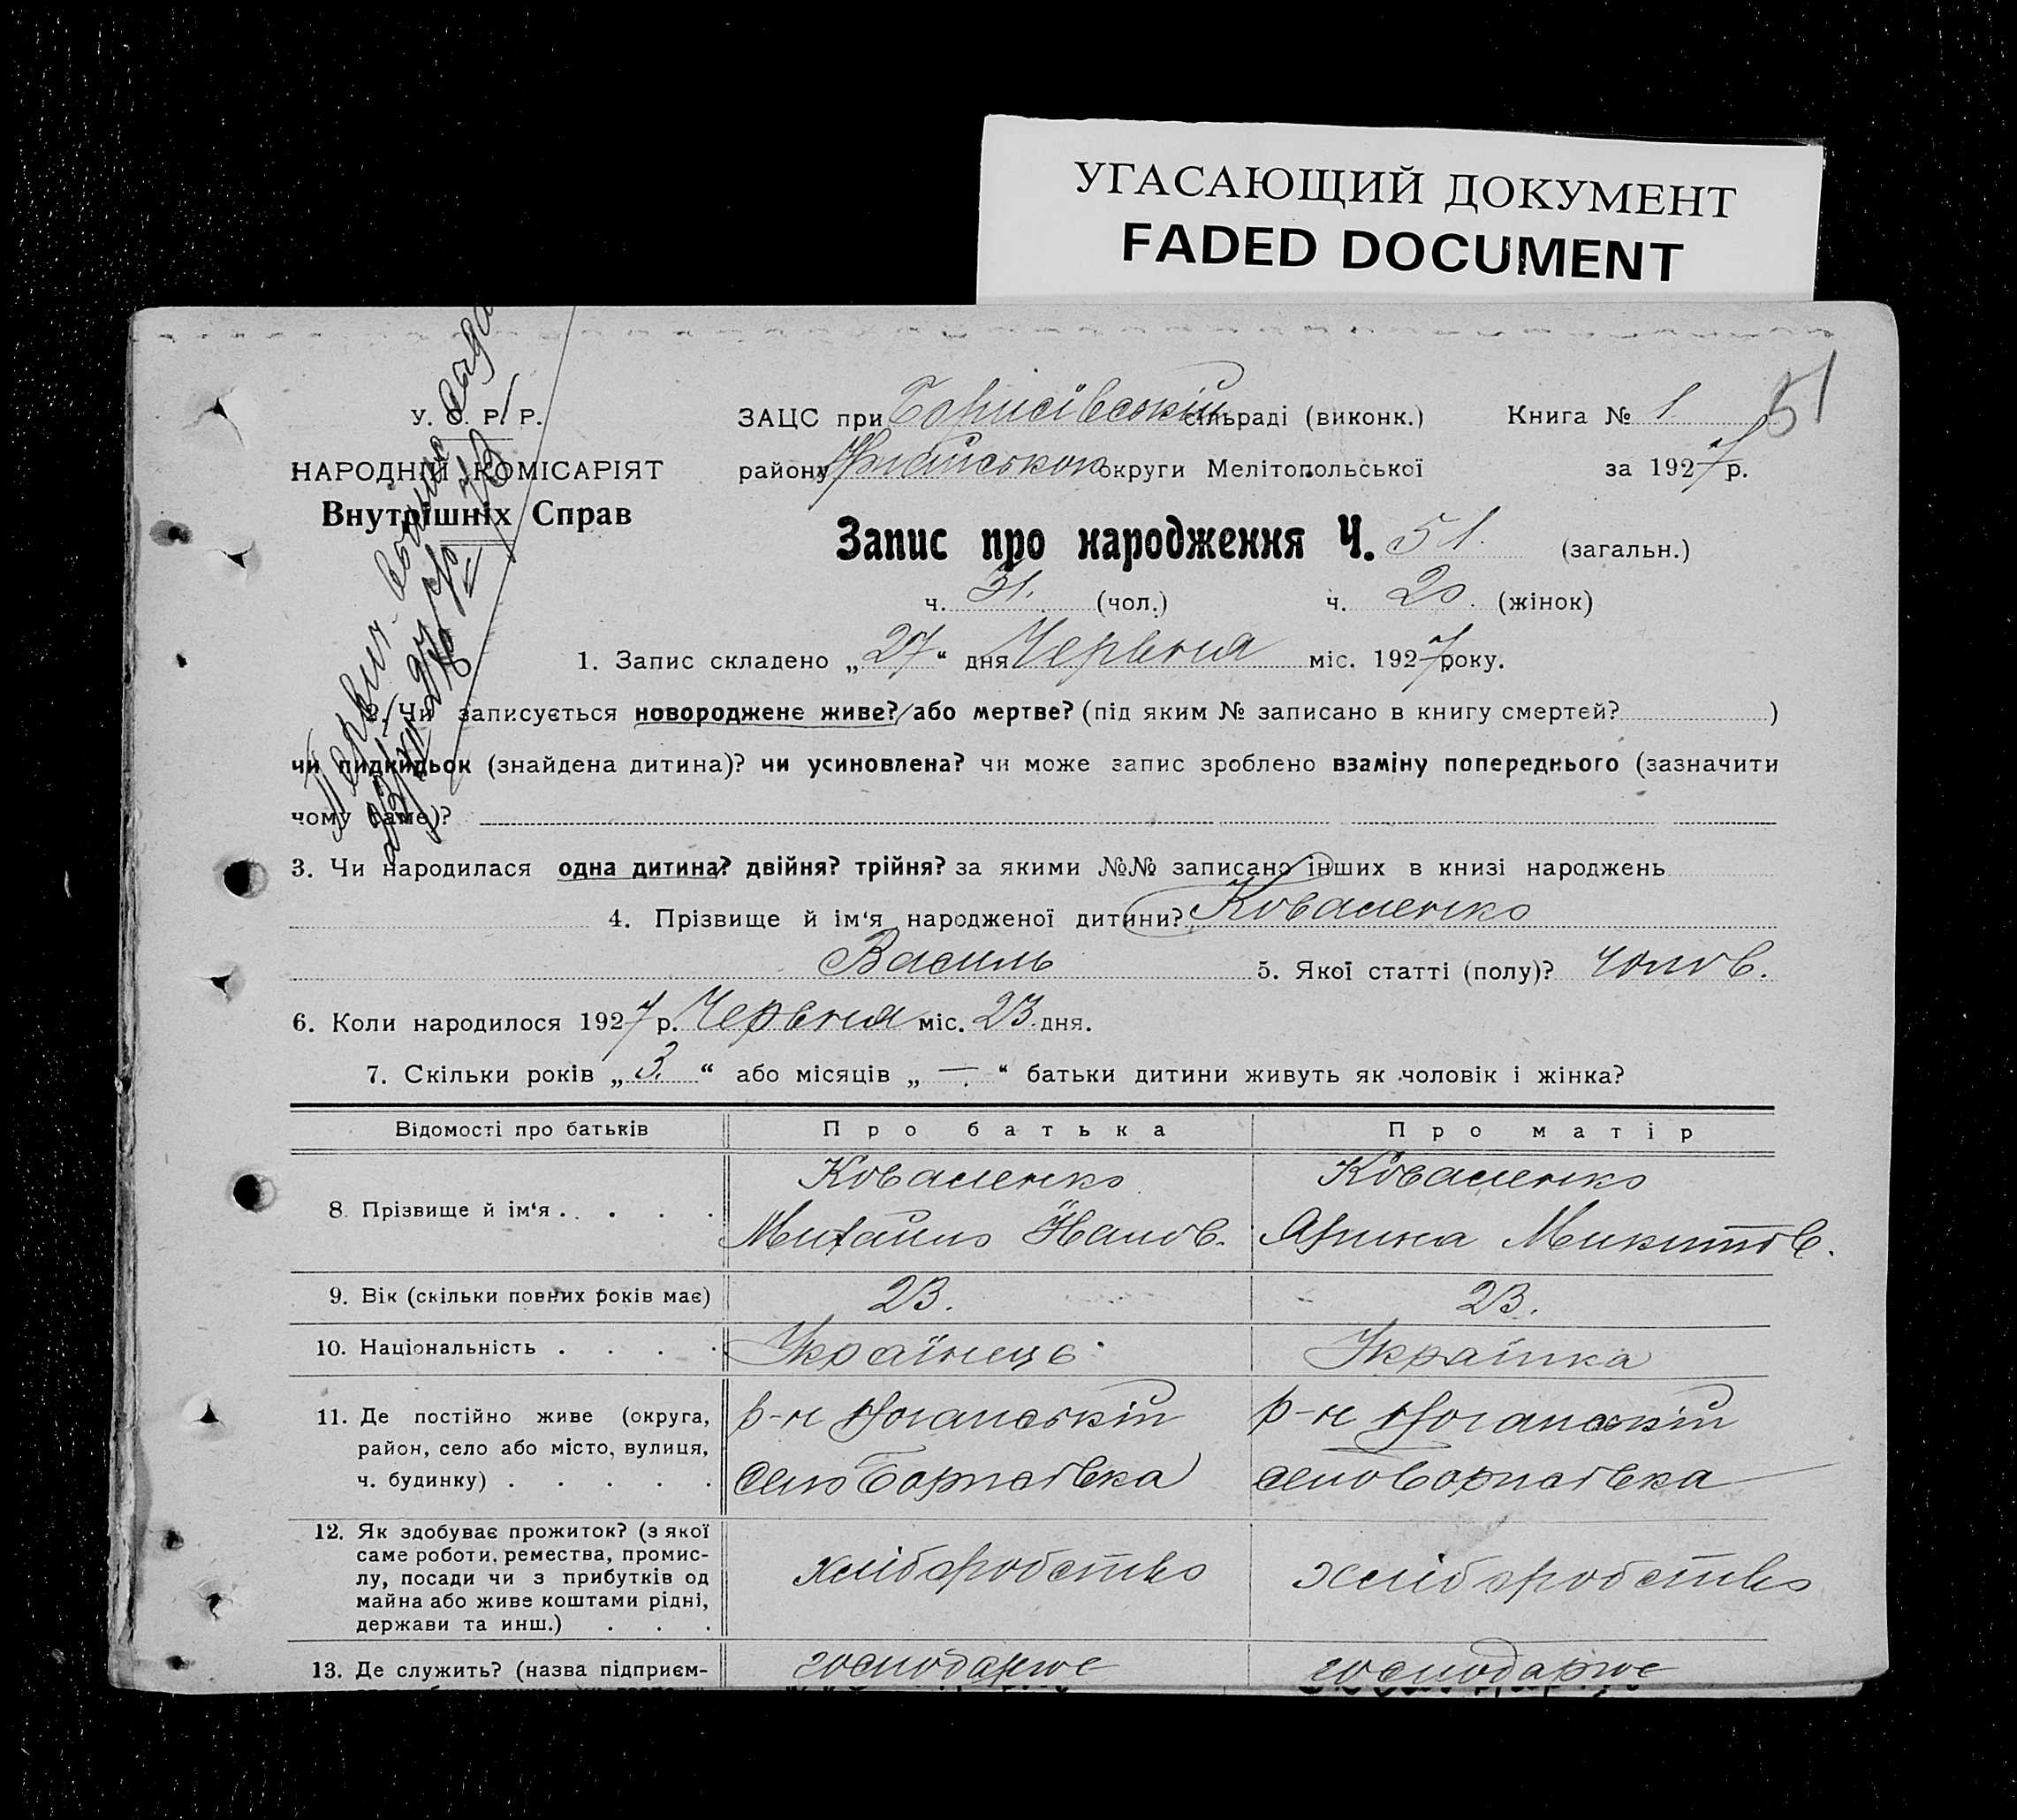 УГАСАЮЩИЙ ДОКУМЕНТ
FADED DOCUMENT
51
У. С. Р. Р.
НАРОДНІЙ КОМІСАРІЯТ
Внутрішніх Справ
ЗАЦС при Борисівській сільраді (виконк.) Книга № 1
району округи Мелітопольської за 1927 р.
Запис про народження Ч. 51. (загальн.)
ч. 31. (чол.) ч. 20. (жінок)
1. Запис складено „27“ дня Червня міс. 1927 року.
2. Чи записується новороджене живе? або мертве? (під яким № записано в книгу смертей? )
чи підкидьок (знайдена дитина)? чи усиновлена? чи може запис зроблено взаміну попереднього (зазначити
чому саме)?
3. Чи народилася одна дитина? двійня? трійня? за якими №№ записано інших в книзі народжень
4. Прізвище й ім‘я народженої дитини? Коваленко
Василь 5. Якої статті (полу)? чолов.
6. Коли народилося 1927 р. Червня міс. 23 дня.
7. Скільки років „3.“ або місяців „—“ батьки дитини живуть як чоловік і жінка?
Відомості про батьків Про батька Про матір
8. Прізвище й ім‘я . . . . . Коваленко Коваленко
Михайло Іванов. Ярина Микитов.
9. Вік (скільки повних років має) 23. 23.
10. Національність . . . . Українець Українка
11. Де постійно живе (округа, р-н Ногайській р-н Ногайській
район, село або місто, вулиця,
ч. будинку) . . . . . село Борисівка село Борисівка
12. Як здобуває прожиток? (з якої
саме роботи, ремества, промис-
лу, посади чи з прибутків од хліборобство хліборобство
майна або живе коштами рідні,
держави та инш.) . . .
13. Де служить? (назва підприєм- господарює господарює